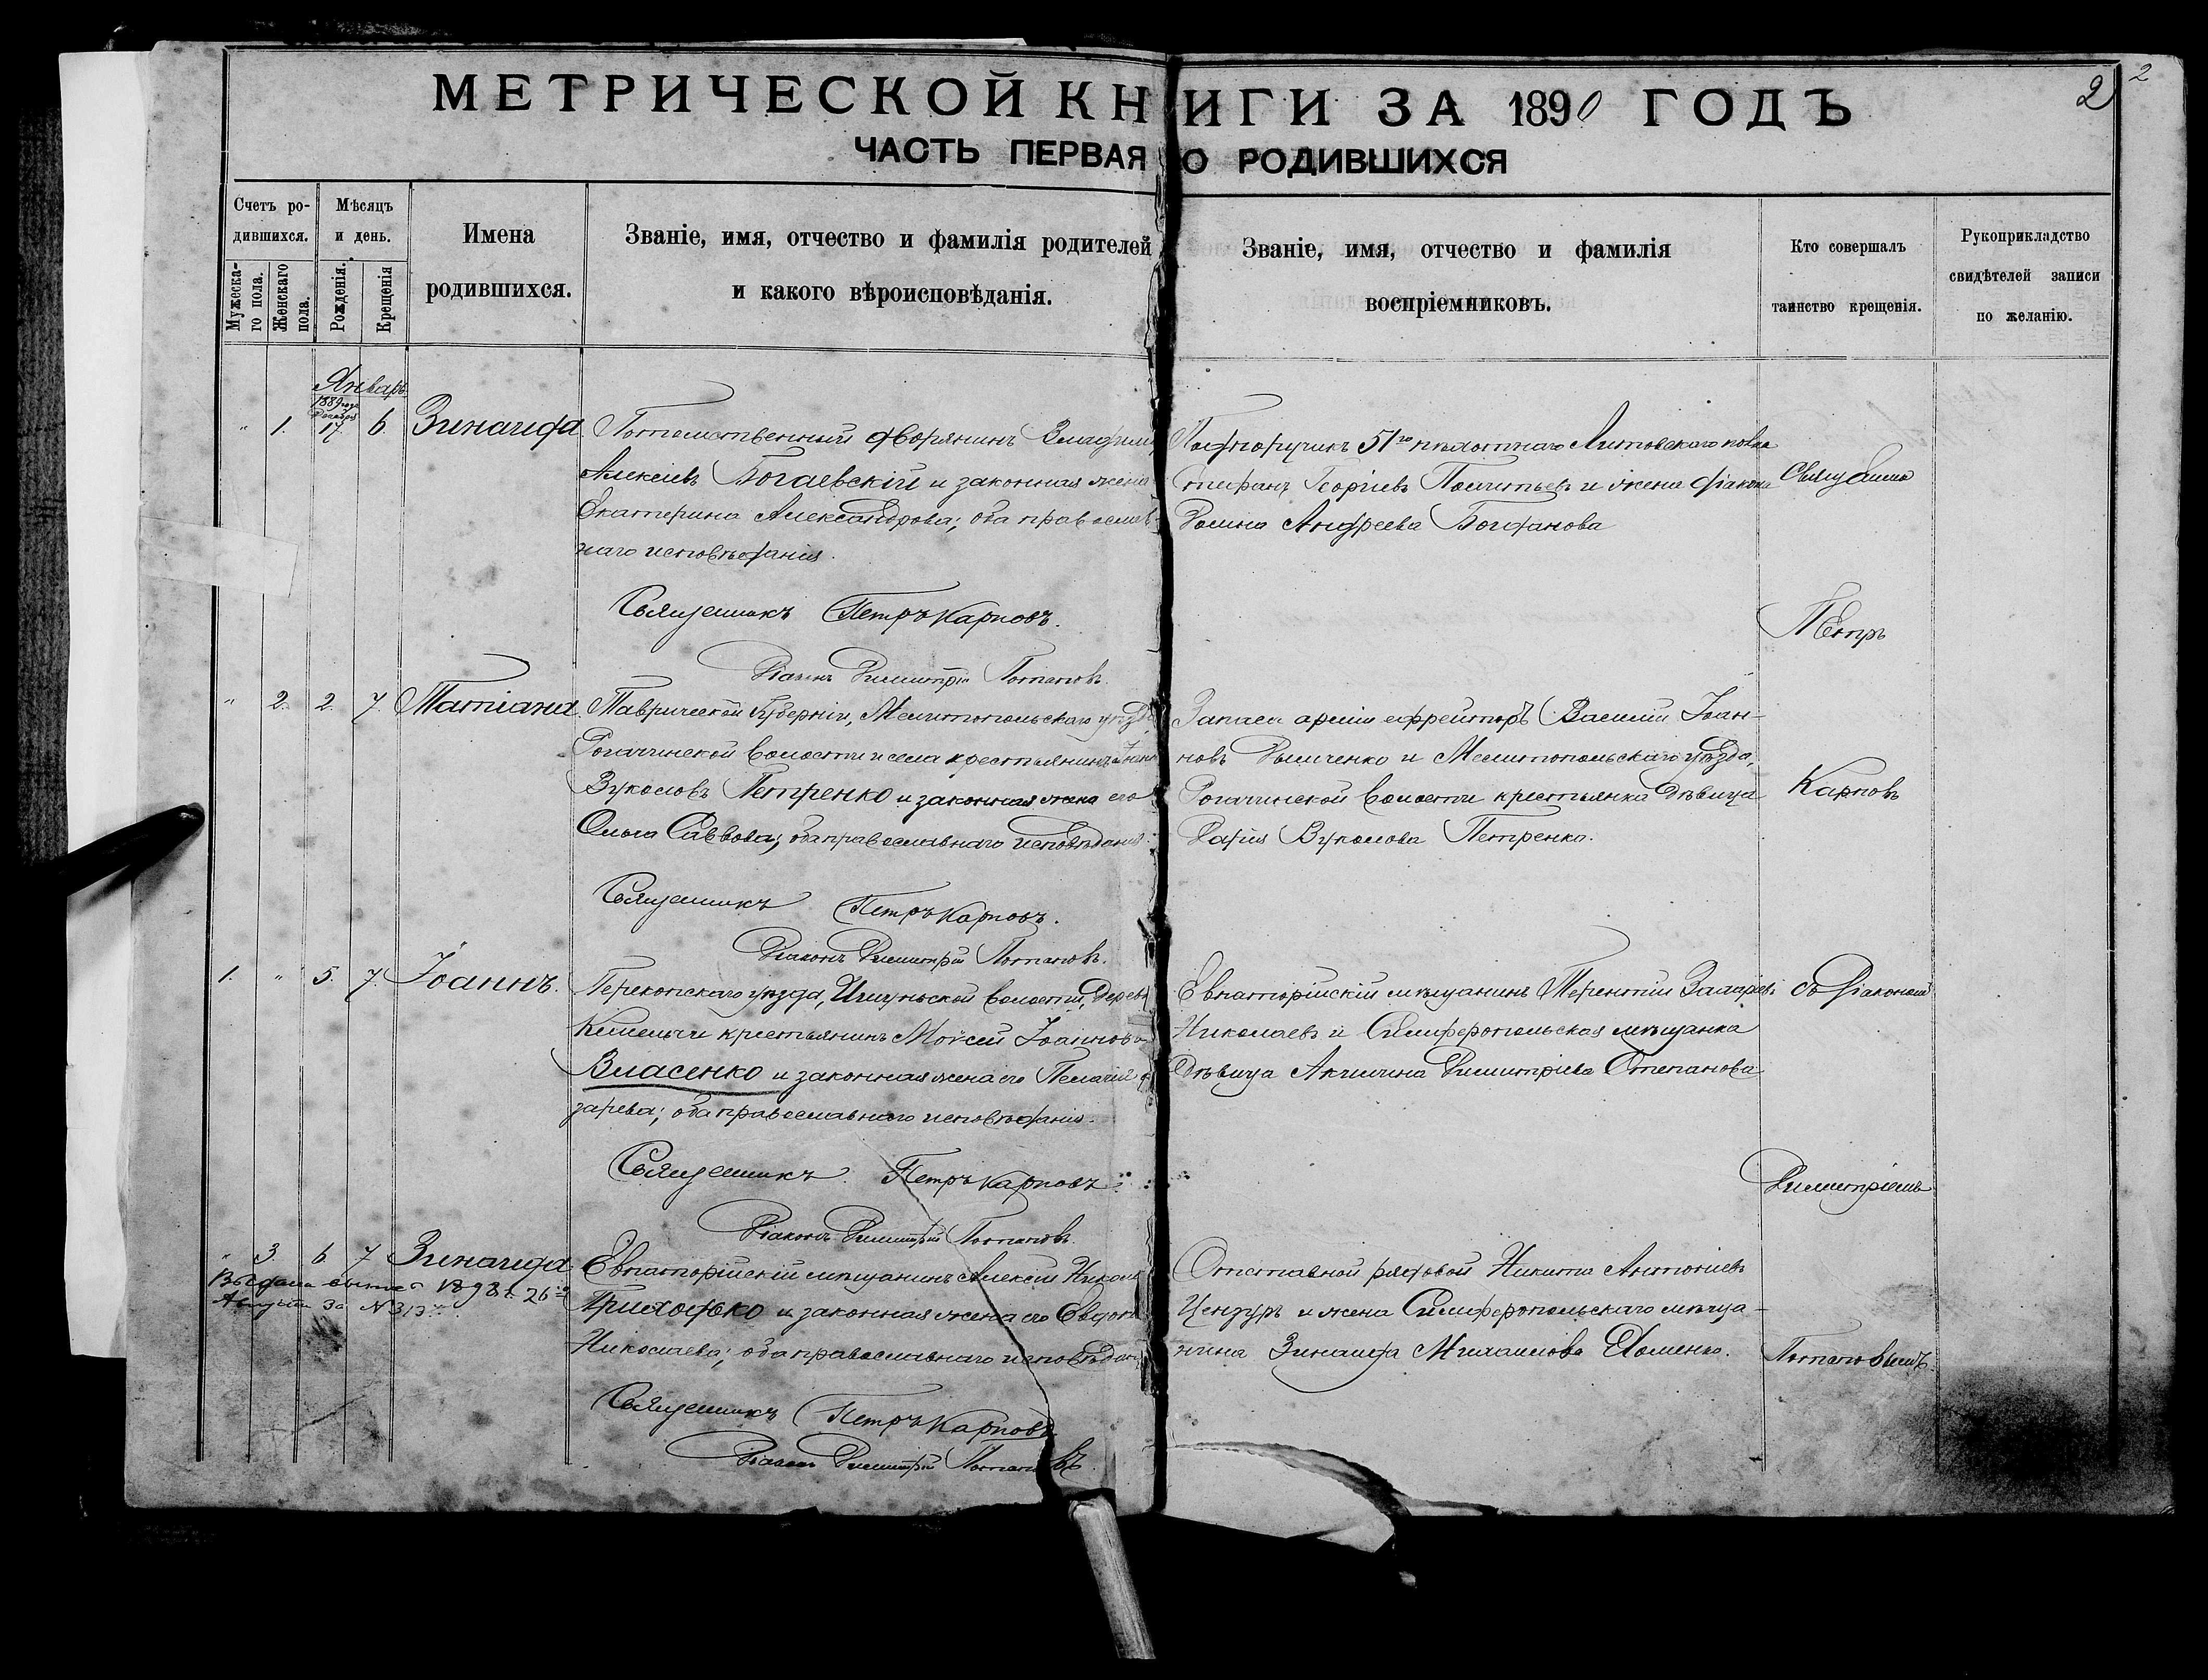 2
2
МЕТРИЧЕСКОЙ КНИГИ ЗА 1890 ГОДЪ
ЧАСТЬ ПЕРВАЯ О РОДИВШИХСЯ
Счетъ ро-
дившихся.
Мужеска-
го пола.
Женскаго
пола.
Мѣсяцъ
и день.
Рожденія.
Крещенія
Имена
родившихся.
Званіе, имя, отчество и фамилія родителей
и какого вѣроисповѣданія.
Званіе, имя, отчество и фамилія
воспріемниковъ.
Кто совершалъ
таинство крещенія.
Рукоприкладство
свидѣтелей записи
по желанію.
Январь
1889 года
Декабря
" 1. 17. 6. Зинаида
Потомственный дворянинъ Владимiръ
Алексіевъ Богаевскій и законная жена
Екатерина Александрова; оба православ-
наго исповѣданія.
Подпоручикъ 51го пѣхотнаго Литовскаго полка
Стефанъ Георгіевъ и жена діакона
Андреева Богданова
Священникъ Петръ Карповъ.
Діаконъ Димитрій Потаповъ.
" 2. 2. 7. Татіана
Таврической Губерніи, Мелитопольскаго уѣзда
Рогачинской волости и села крестьянинъ
Вуколовъ Петренко и законная жена его
Ольга Саввова; оба православнаго исповѣданія.
Запаса арміи ефрейторъ Василій Іоан-
новъ и Мелитопольскаго уѣзда,
Рогачинской волости крестьянка дѣвица
Дарія Вуколова Петренко.
Священникъ Петръ Карповъ.
Діаконъ Димитрій Потаповъ.
1. " 5. 7. Іоаннъ.
Перекопскаго уѣзда, Ишуньской волости, дерев
крестьянинъ Моѵсей Іоанновъ
Власенко и законная жена его Пелагія
зарева; оба православнаго исповѣданія.
Евпаторійскій мѣщанинъ Терентій
Николаевъ и Симферопольская мѣщанка
дѣвица Акилина Димитріева Степанова
Священникъ Петръ Карповъ
Діаконъ Димитрій Потаповъ.
" 3. 6. 7. Зинаида
Евпаторійскій мѣщанинъ Алексій Никола
Приходько и законная жена его Евдок
Николаева; оба православнаго исповѣдан
Отставной рядовой Никита Антоніевъ
Цензуръ и жена Симферопольскаго мѣща-
нина Зинаида Михаилова Хоменко.
1898 г. 26го
Августа за № 313
Священникъ Петръ Карповъ
Діаконъ Димитрій Потаповъ.
Священникъ
Петръ
Карповъ
съ діакономъ
Димитріемъ
Потаповымъ.